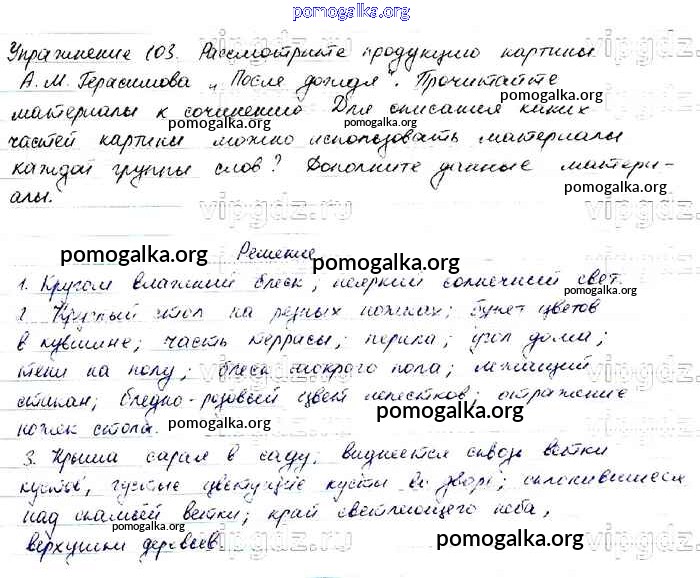 pomogalka.org
Упражнение 103. Рассмотрите продукцию картины
А. М. Герасимова „После дождя". Прочитайте
материалы к сочинению Для описания каких
pomogalka.org pomogalka.org
частей картины можно использовать материалы
каждой группы слов? Дополните данные матери-
pomogalka.org
алы.
vipgdz.ru vipgdz.ru
Решение
pomogalka.org pomogalka.org
1. Кругом влажный блеск, неяркий солнечный свет.
pomogalka.org
2. Круглый стол на резных ножках; букет цветов
в кувшине; часть террасы; перила; угол дома;
vipgdz.ru vipgdz.ru
тени на полу; блеск мокрого пола; лежащий
стакан; бледно-розовый цвет лепестков; отражение
pomogalka.org
ножек стола.
pomogalka.org
3. Крыша сарая в саду, виднеется сквозь ветки
кустов, густые цветущие кусты во дворе; склонившиеся
над скамьей ветки; край светлеющего неба,
pomogalka.org
верхушки деревьев
pomogalka.org vipgdz.ru